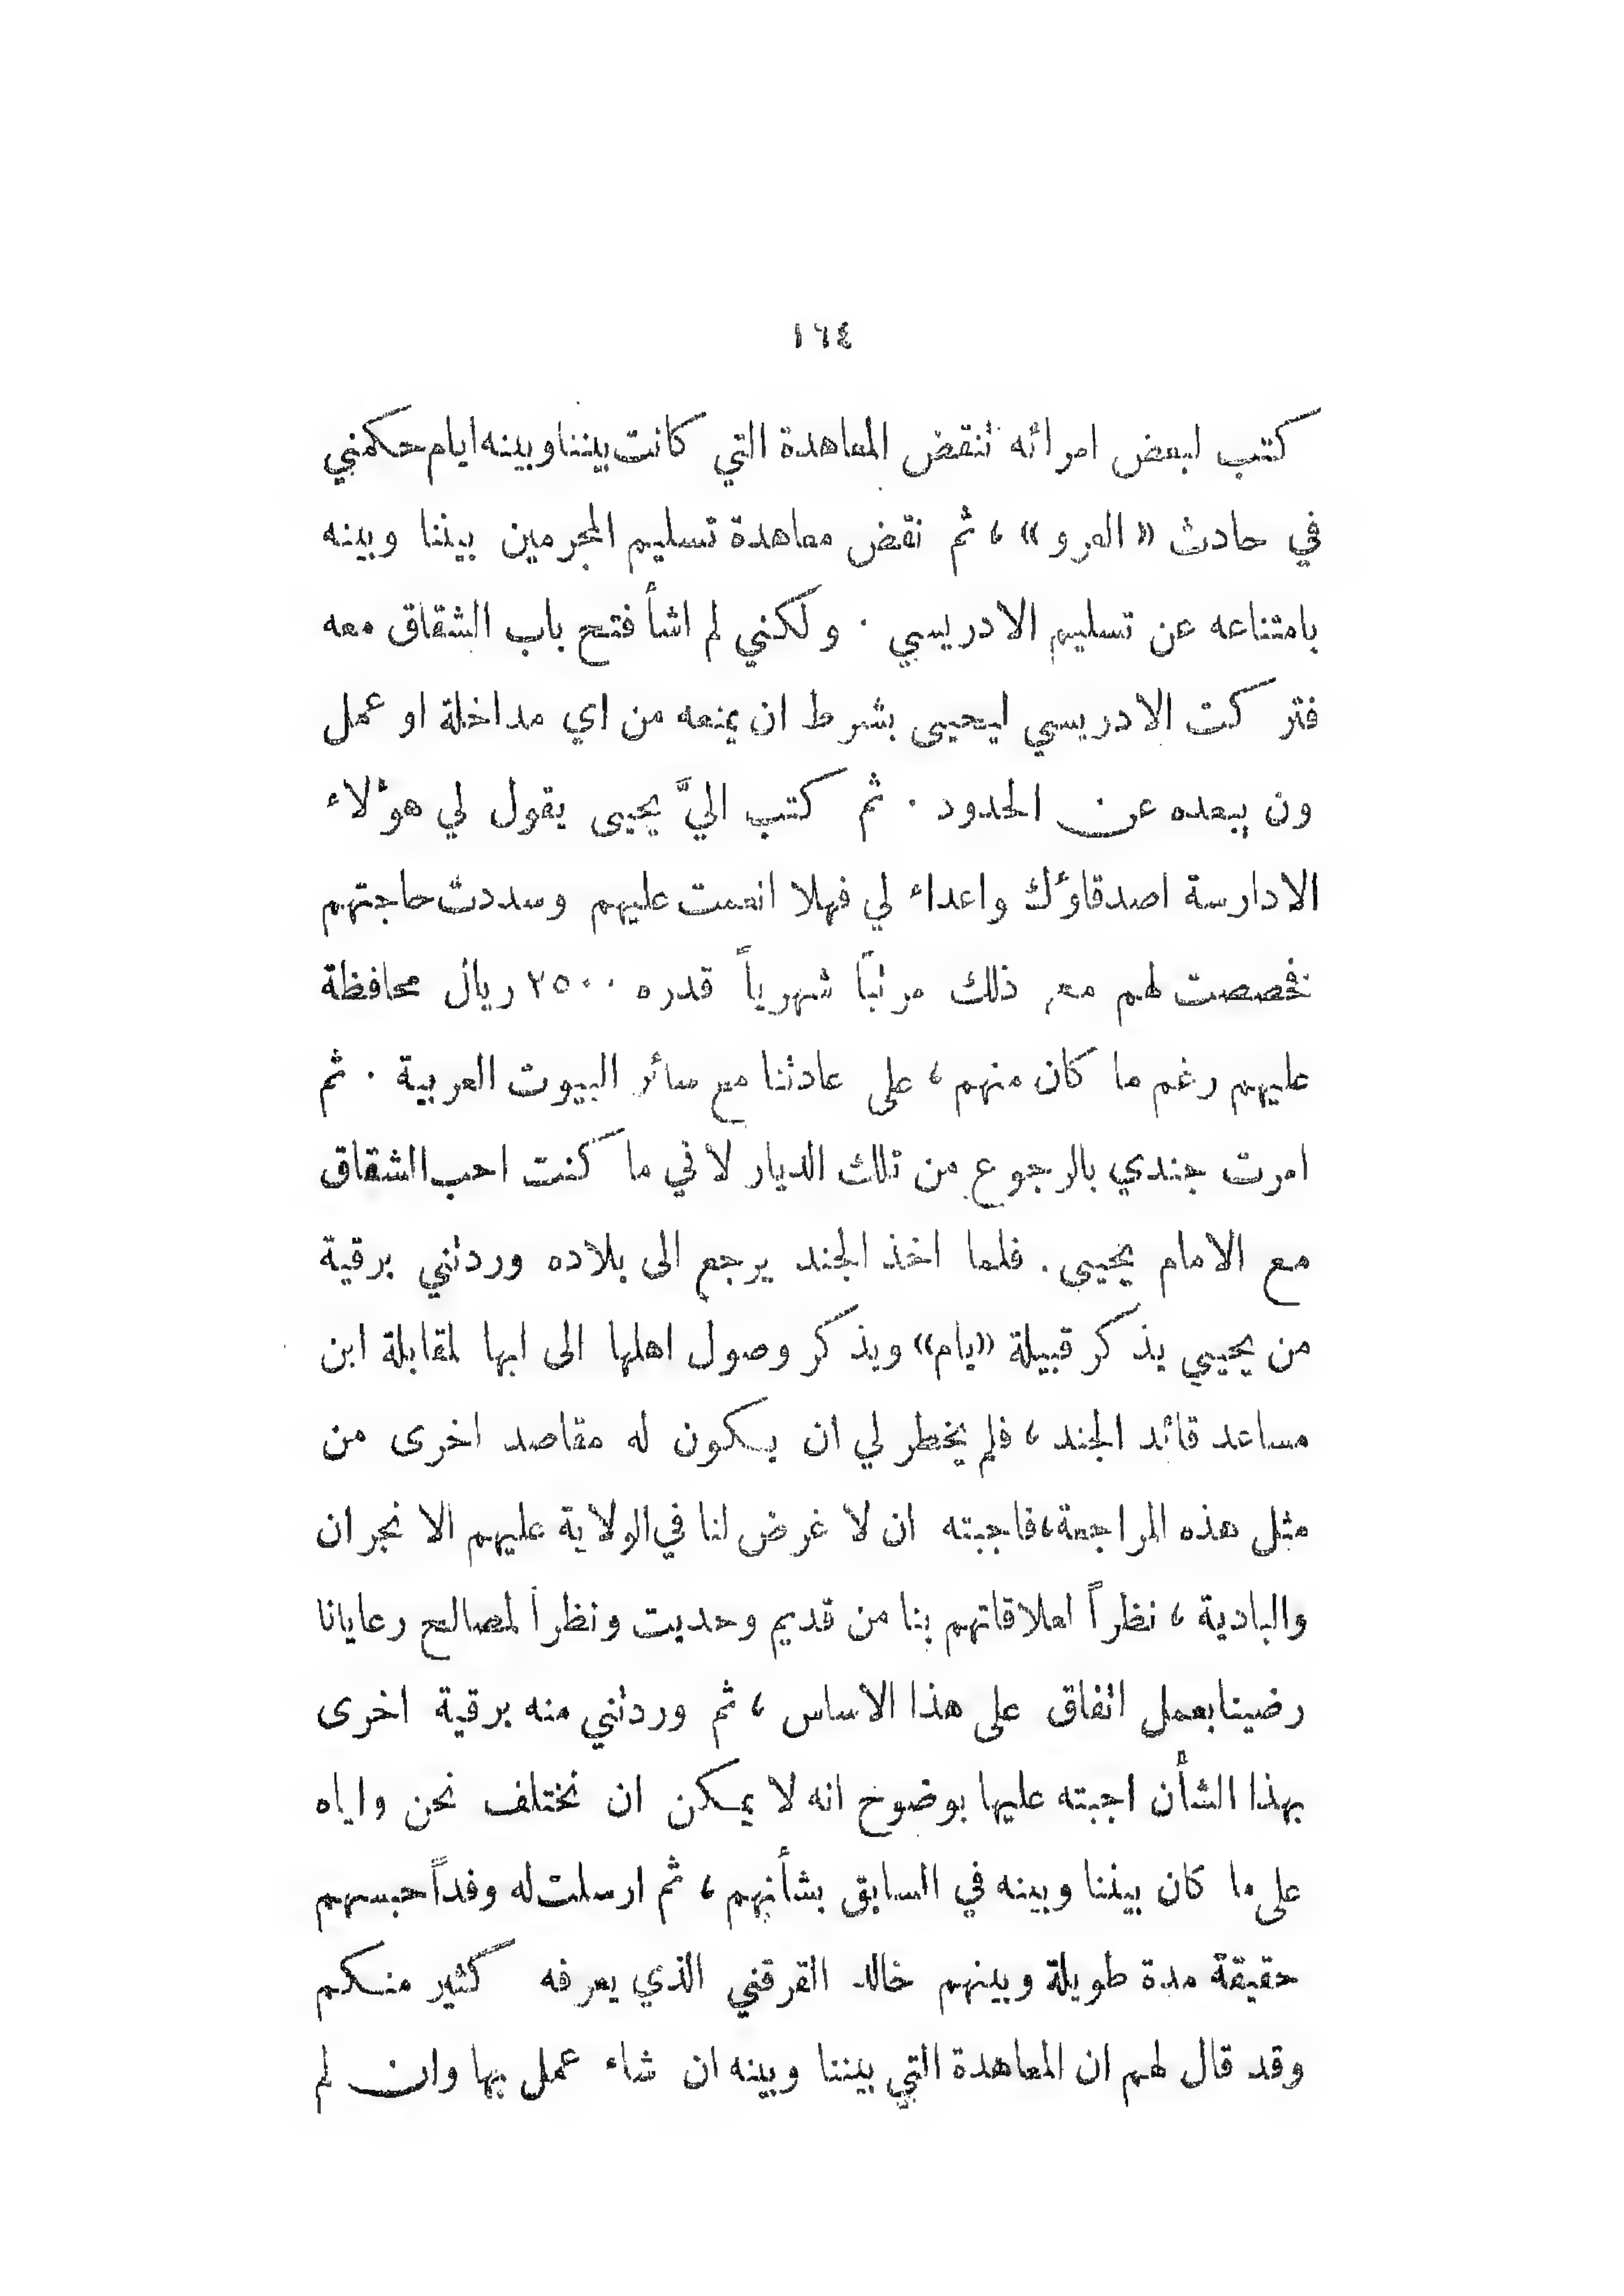 ١٦٤
كتب لبعض امرائه تنقض المعاهدة التي كانت بيننا وبينه ايام حكمني
في حادث « العرو » ، ثم نقض معاهدة تسليم المجرمين بيننا وبينه
بامتناعه عن تسليم الادريسي . ولكني لم اشأ فتح باب الشقاق معه
فتركت الادريسي ليحيى بشرط ان يمنعه من اي مداخلة او عمل
ون يبعده عن الحدود . ثم كتب اليَّ يحيى يقول لي هؤلاء
الادارسة اصدقاؤك واعداء لي فهلا انعمت عليهم وسددت حاجتهم
فخصصت لهم مع ذلك مرتباً شهرياً قدره ٢٥٠٠ ريال محافظة
عليهم رغم ما كان منهم ، على عادتنا مع سائر البيوت العربية . ثم
امرت جندي بالرجوع من تلك الديار لافي ما كنت احب الشقاق
مع الامام يحيى . فلما اخذ الجند يرجع الى بلاده وردتني برقية
من يحيى يذكر قبيلة «يام» ويذكر وصول اهلها الى ابها لمقابلة ابن
مساعد قائد الجند ، فلم يخطر لي ان يكون له مقاصد اخرى من
مثل هذه المراجعة ، فاجبته ان لا غرض لنا في الولاية عليهم الا نجران
والبادية ، نظراً لعلاقاتهم بنا من قديم وحديث ونظراً لمصالح رعايانا
رضينا بعمل اتفاق على هذا الاساس ، ثم وردتني منه برقية اخرى
بهذا الشأن اجبته عليها بوضوح انه لا يمكن ان نختلف نحن واياه
على ما كان بيننا وبينه في السابق بشأنهم ، ثم ارسلت له وفداً حبسهم
حقيقة مدة طويلة وبينهم خالد القرقني الذي يعرفه كثير منكم
وقد قال لهم ان المعاهدة التي بيننا وبينه ان شاء عمل بها وان لم